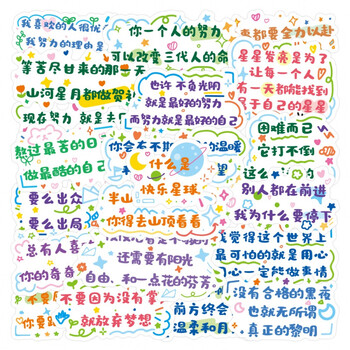 我喜欢的人很优
我努力的理由是
等苦尽甘来的那一天
山河星月都做贺礼
现在努力 就是
你一个人的努力
可以改变三代人的命
也许 不负光阴
就是最好的努力
而努力就是最好的自己
都要全力以赴
星星发亮是为了
让每一个人
有一天都能找到
属于自己的星星
熬过最苦的日
做最酷的自己
什么是
快乐星球
温暖
困难而已
它打不倒
这么
别人都在前进
我为什么要停下
要么出众
要么出局
半山
你得去山顶看看
总有人喜
你的奇奇
还需要有阳光
自由、和一点花的芬芳
我觉得这个世界上
最可怕的就是用心
一心一定能做事情
不要 不要因为没有掌
就放弃梦想
前方终会
温柔和月
没有合格的黑夜
也就无所谓
真正的黎明